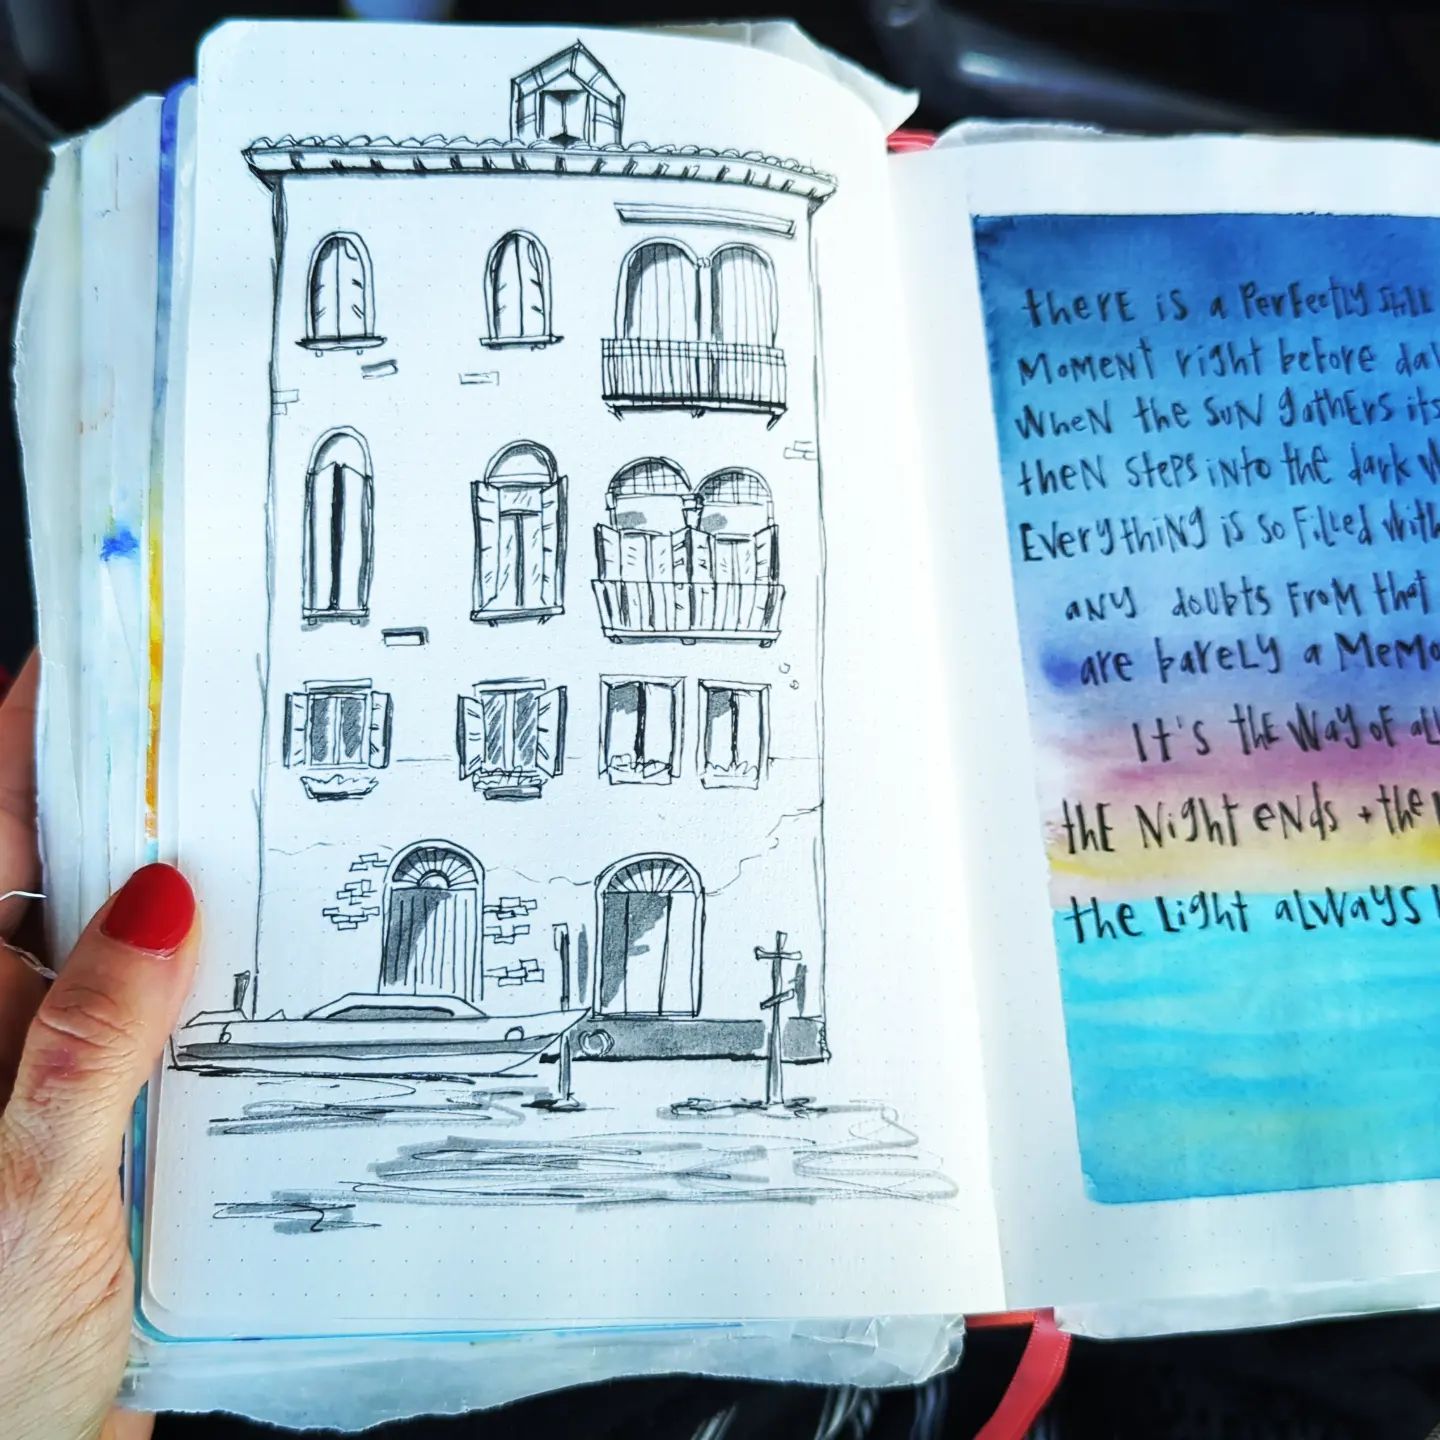 therE is a PerFectly Still
MoMENT right before
WheN the SuN gathErs its
theN StePs iNto the dark
EveryThiNg is so Filled with
aNy doubts FroM that
are barely a
It's thE Way oF
thE Night eNds + the
the Light aLWays